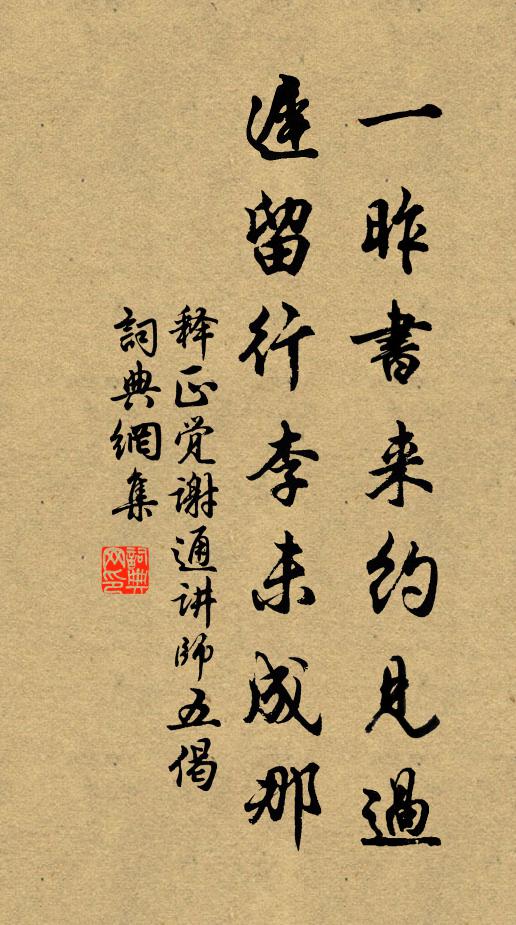 一昨書来约見過
遲留行李未成那
释正觉谢通讲师五偈
詞典網集
詞典网印